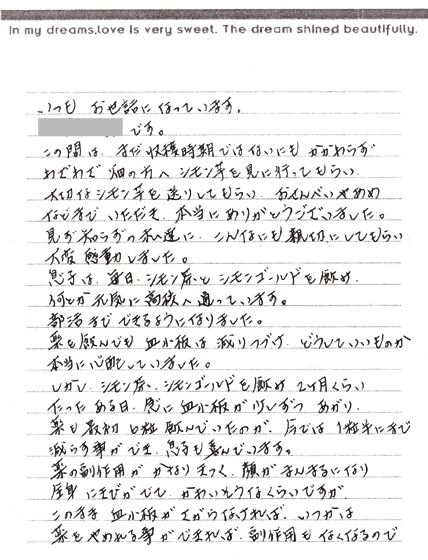 In my dreams,love is very sweet. The dream shined beautifully.
いつも お世話になっています。
です。
この間は、まだ収穫時期ではないにもかかわらず
わざわざ畑の方へシモン芋を見に行ってもらい
大切なシモン芋を送りしてもらい、おせんべいやあめ
などまで いただき、本当にありがとうございました。
見ず知らずの私達に、こんなにも親切にしてもらい
大変感動しました。
息子は、毎日、シモン茶とシモンゴールドを飲み、
何とか元気に高校へ通っています。
部活までできるようになりました。
薬を飲んでも血小板は減りつづけ、どうしていいものか
本当に心配していました。
しかし、シモン茶、シモンゴールドを飲み 2ヶ月くらい
たったある日、急に血小板が少しずつ あがり、
薬も最初 6粒 飲んでいたのが、今では1粒半にまで
減らす事ができ、息子も喜んでいます。
薬の副作用が かなりきつく、顔がまんまるになり
全身にきびがでて、かわいそうなくらいですが、
このまま 血小板が さがらなければ、いつかは
薬をやめれる事ができれば、副作用もなくなるので